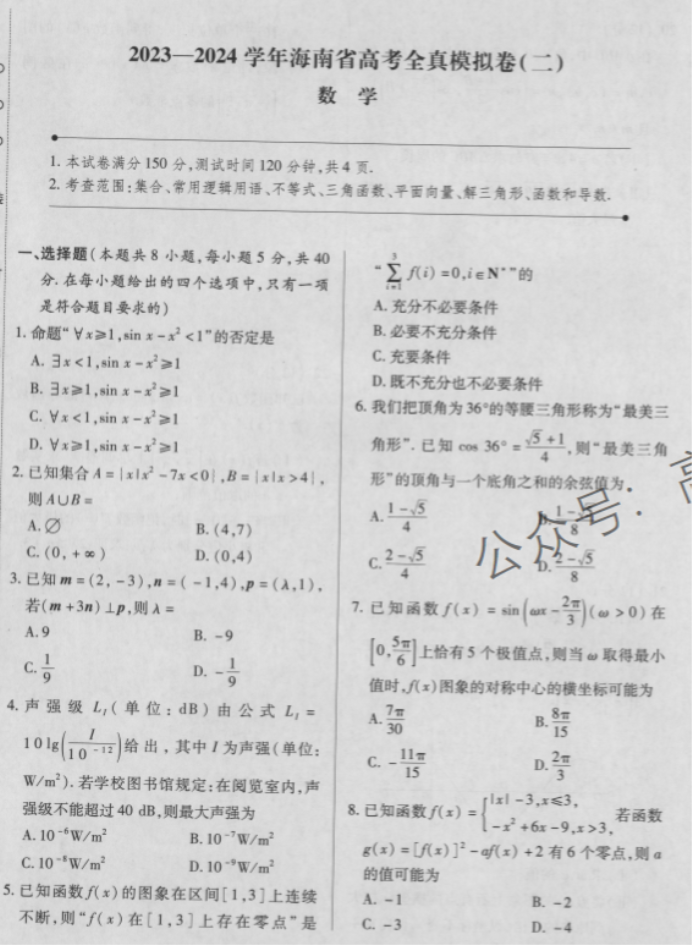 2023—2024学年海南省高考全真模拟卷(二)
数 学
1. 本试卷满分150分,测试时间120分钟,共4页.
2. 考查范围:集合、常用逻辑用语、不等式、三角函数、平面向量、解三角形、函数和导数.
一、选择题(本题共8小题,每小题5分,共40
分.在每小题给出的四个选项中,只有一项
是符合题目要求的)
1. 命题“∀x⩾1,sin x-x²<1”的否定是
A. ∃x<1,sin x-x²⩾1
B. ∃x⩾1,sin x-x²⩾1
C. ∀x<1,sin x-x²⩾1
D. ∀x⩾1,sin x-x²⩾1
2. 已知集合A={x|x²-7x<0},B={x|x>4},
则A∪B=
A. ∅ B. (4,7)
C. (0,+∞) D. (0,4)
3. 已知m=(2,-3),n=(-1,4),p=(λ,1),
若(m+3n)⊥p,则λ=
A. 9 B. -9
C. 1/9 D. -1/9
4. 声强级L_I(单位:dB)由公式L_I=
10lg(I/10⁻¹²)给出,其中I为声强(单位:
W/m²).若学校图书馆规定:在阅览室内,声
强级不能超过40 dB,则最大声强为
A. 10⁻⁶W/m² B. 10⁻⁷W/m²
C. 10⁻⁸W/m² D. 10⁻⁹W/m²
5. 已知函数f(x)的图象在区间[1,3]上连续
不断,则“f(x)在[1,3]上存在零点”是
“∑_{i=1}^{3} f(i)=0,i∈N*”的
A. 充分不必要条件
B. 必要不充分条件
C. 充要条件
D. 既不充分也不必要条件
6. 我们把顶角为36°的等腰三角形称为“最美三
角形”.已知cos 36°=(√5+1)/4,则“最美三角
形”的顶角与一个底角之和的余弦值为
A. (1-√5)/4 B. (1-√5)/8
C. (2-√5)/4 D. (2-√5)/8
7. 已知函数f(x)=sin(ωx-2π/3)(ω>0)在
[0,5π/6]上恰有5个极值点,则当ω取得最小
值时,f(x)图象的对称中心的横坐标可能为
A. 7π/30 B. 8π/15
C. -11π/15 D. 2π/3
8. 已知函数f(x)={|x|-3,x⩽3, -x²+6x-9,x>3, 若函数
g(x)=[f(x)]²-af(x)+2有6个零点,则a
的值可能为
A. -1 B. -2
C. -3 D. -4
公众号:高